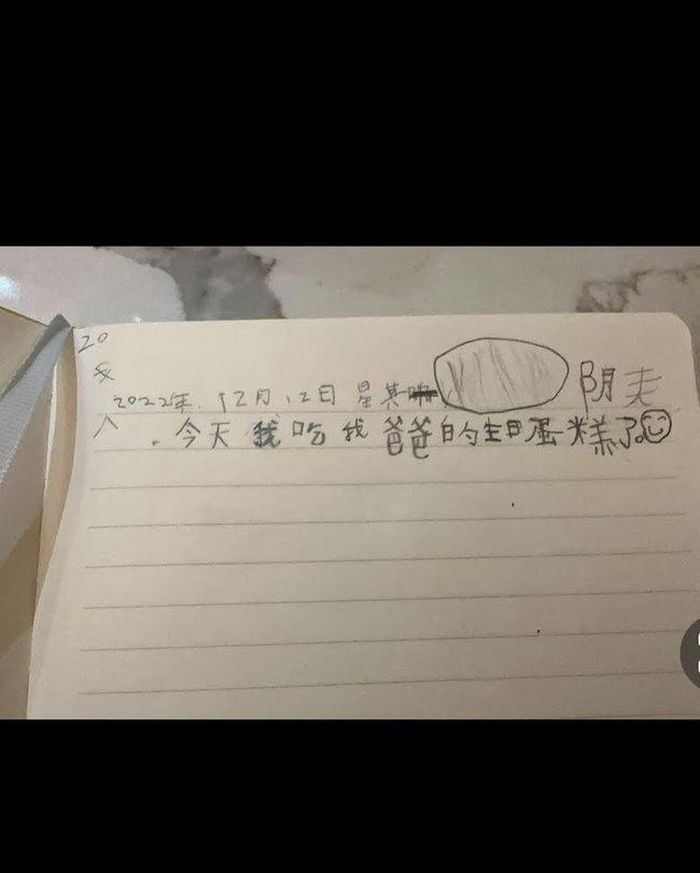 20
2022年. 12月12日 星其 阴
. 今天我吃我爸爸的生日蛋糕了。